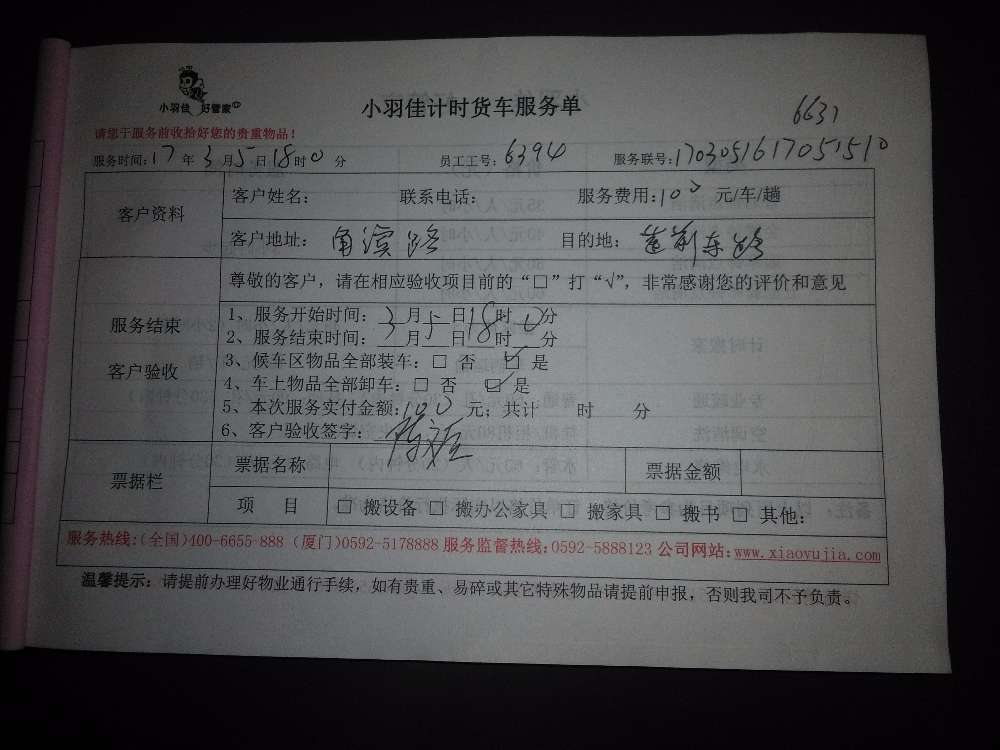 小羽佳 好管家
小羽佳计时货车服务单
6631
请您于服务前收拾好您的贵重物品!
服务时间:17年3月5日18时0分 员工工号:6394 服务联号:1703051617051510
客户资料
客户姓名: 联系电话: 服务费用:100 元/车/趟
客户地址: 路 目的地: 路
服务结束
客户验收
尊敬的客户,请在相应验收项目前的“□”打“√”,非常感谢您的评价和意见
1、服务开始时间:3月5日18时0分
2、服务结束时间: 月 日 时 分
3、候车区物品全部装车:□ 否 ☑ 是
4、车上物品全部卸车:□ 否 ☑ 是
5、本次服务实付金额:100 元;共计 时 分
6、客户验收签字:
票据栏
票据名称 票据金额
项 目 □ 搬设备 □ 搬办公家具 □ 搬家具 □ 搬书 □ 其他:
服务热线:(全国)400-6655-888 (厦门)0592-5178888 服务监督热线:0592-5888123 公司网站:www.xiaoyujia.com
温馨提示:请提前办理好物业通行手续,如有贵重、易碎或其它特殊物品请提前申报,否则我司不予负责。